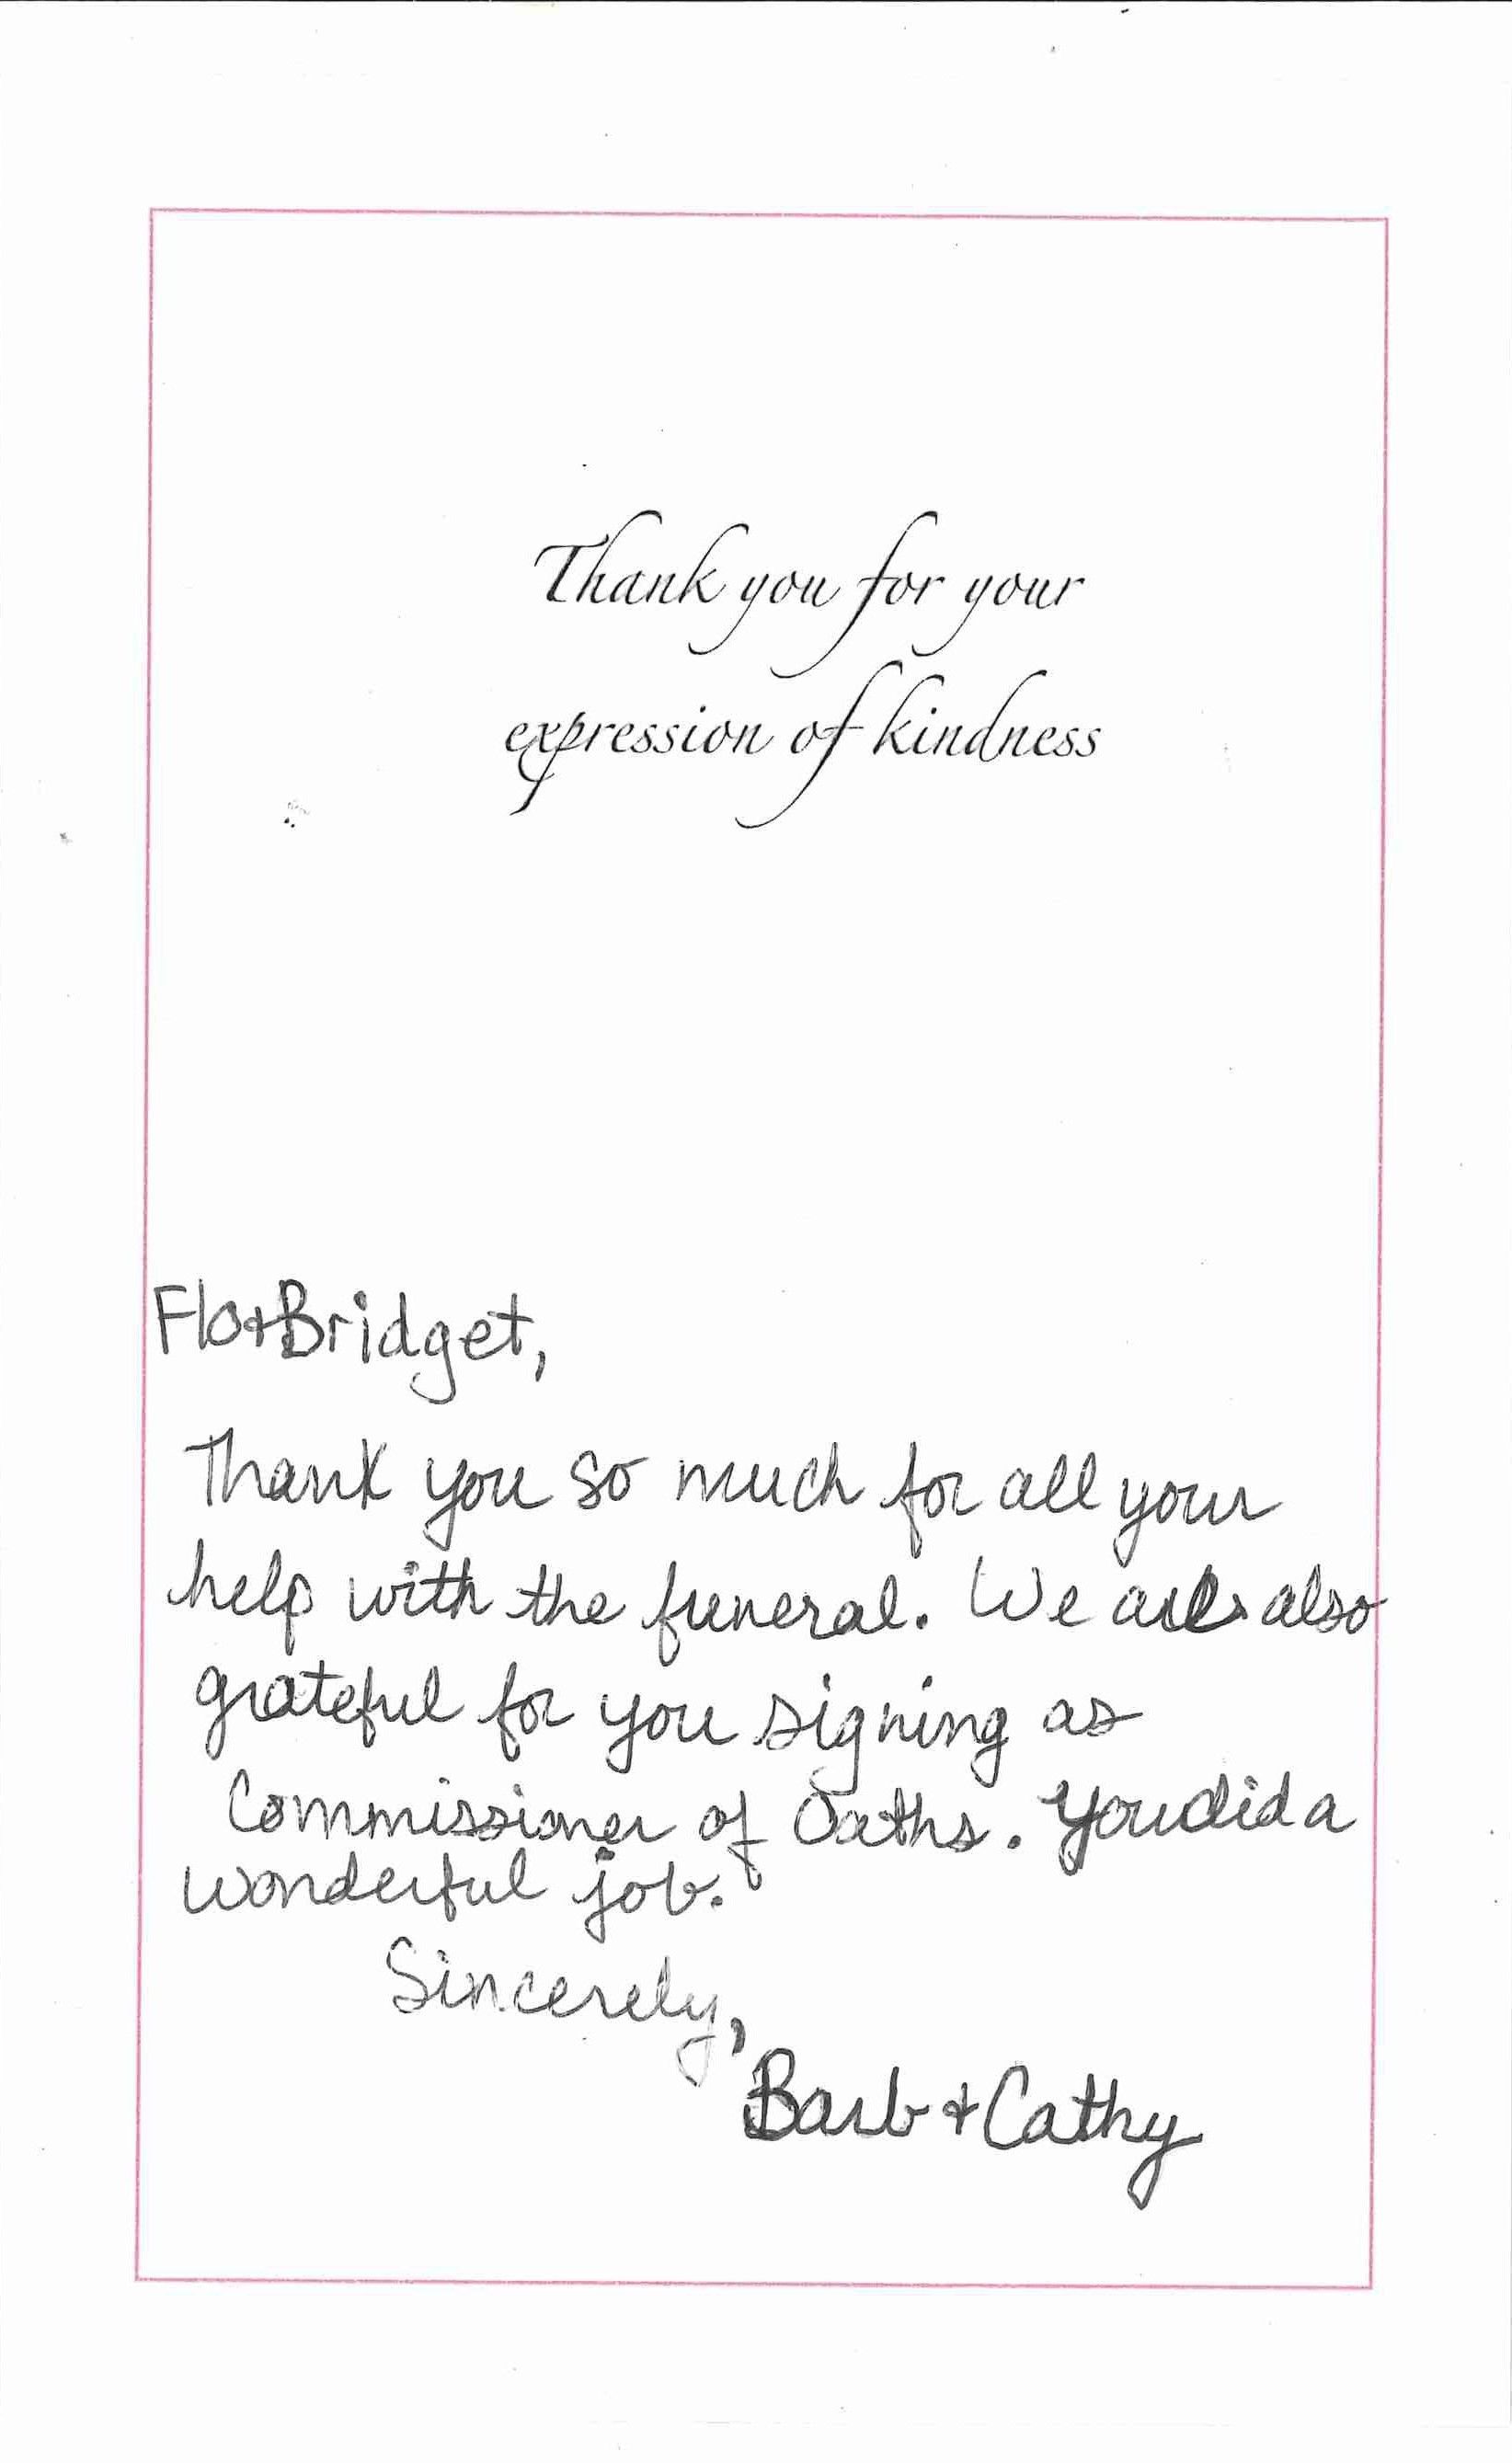 Thank you for your
expression of kindness
Flo+Bridget,
Thank you so much for all your
help with the funeral. We are also
grateful for you signing as
Commissioner of Oaths. You did a
wonderful job.
Sincerely,
Barb + Cathy